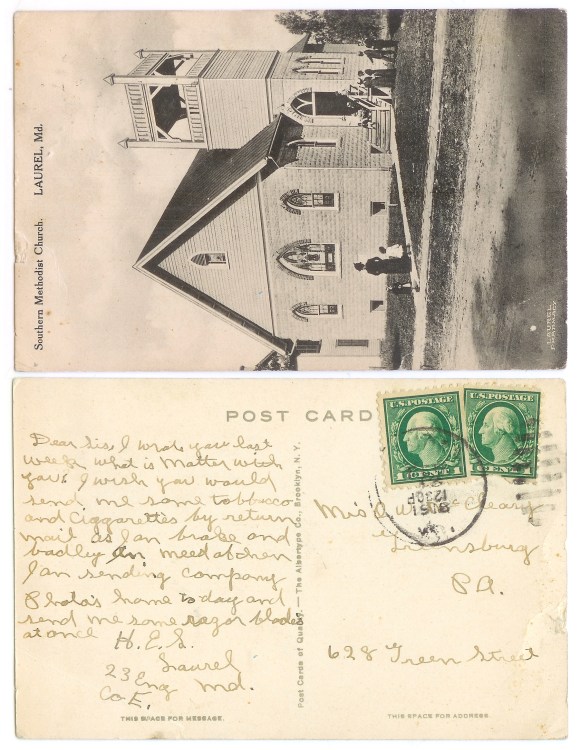 Southern Methodist Church. LAUREL, Md.
LAUREL
PHARMACY
POST CARD
U.S. POSTAGE
1 CENT 1
U.S. POSTAGE
CENT
1230P
Dear Sis, I wrote you last
week what is Matter with
you, I wish you would
send me some tobbacco
and Ciggarettes by return
mail as I am brake and
badley in need of them
I am sending company
Photo's home to day and
send me some razor blades
at once H. E. S.
Laurel
23 Eng Md.
Co E.
THIS SPACE FOR MESSAGE.
Post Cards of Quality. — The Albertype Co., Brooklyn, N. Y.
Greensburg
PA.
628 Green Street
THIS SPACE FOR ADDRESS.